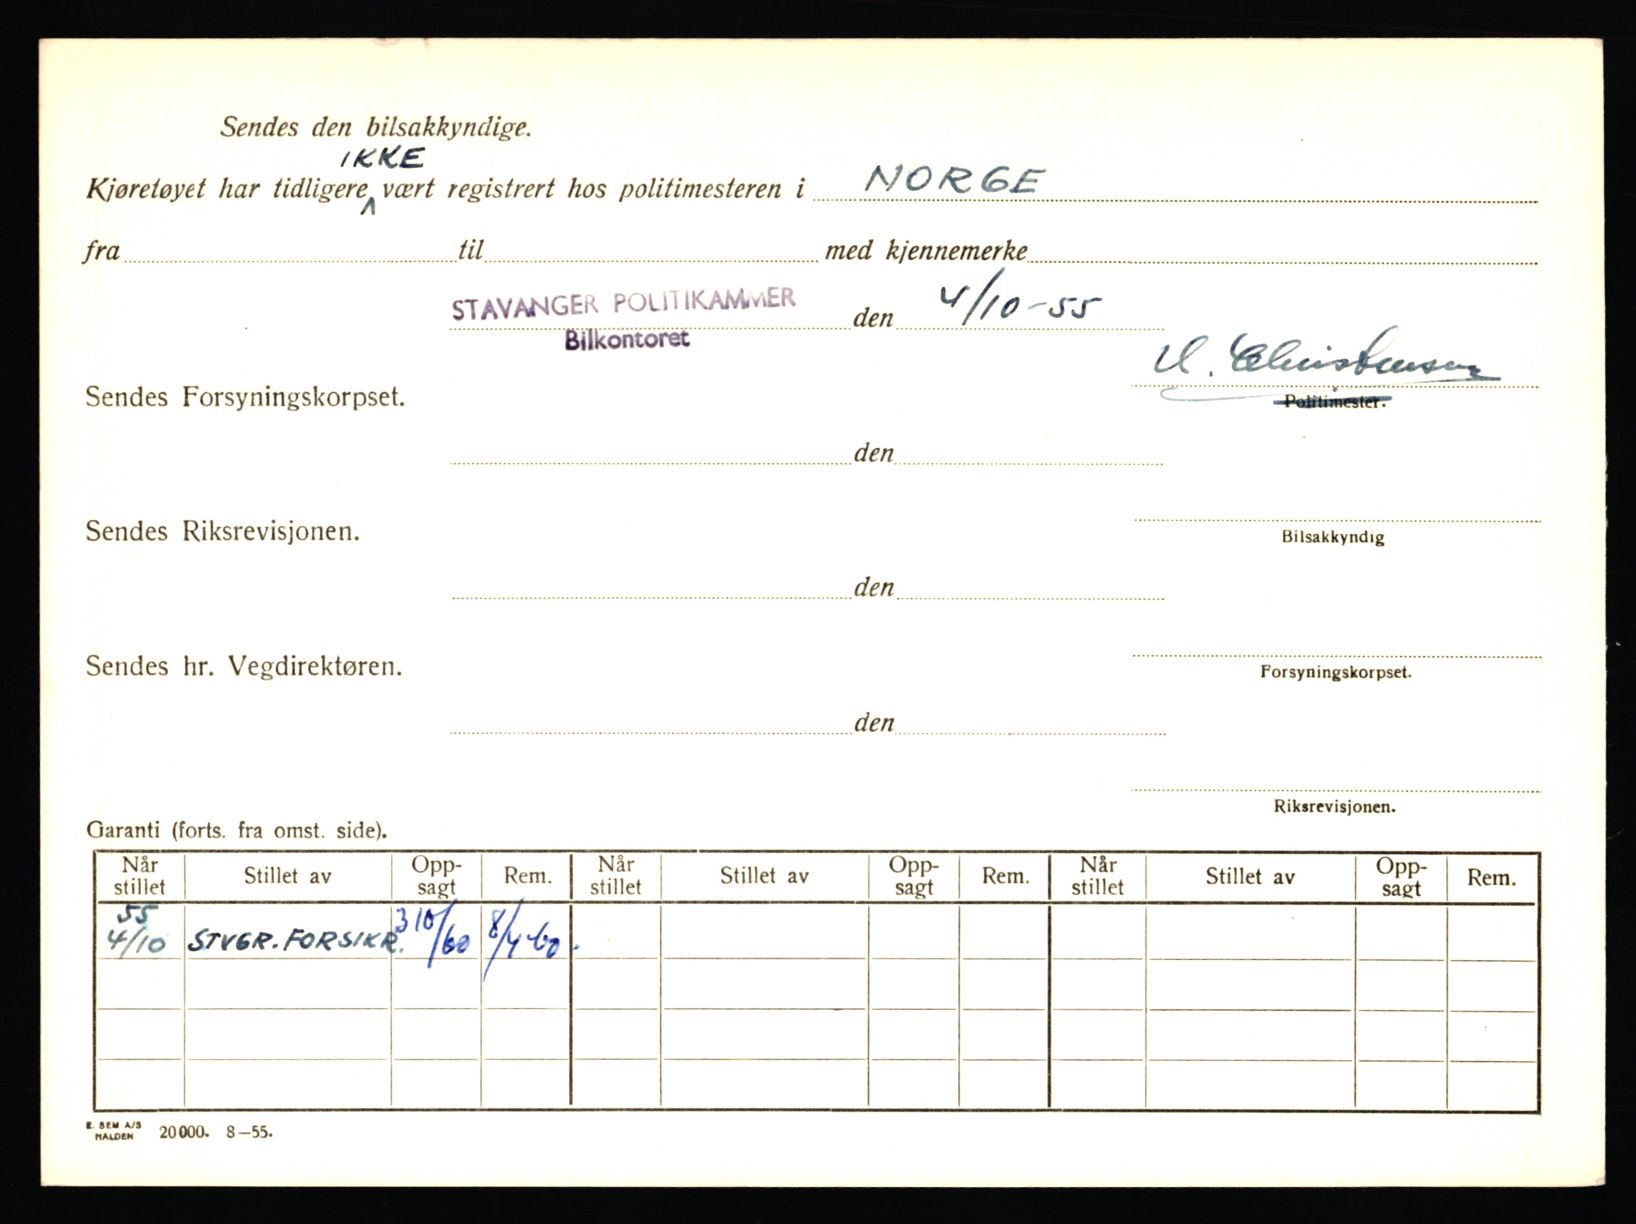 Sendes den bilsakkyndige.
IKKE
Kjøretøyet har tidligere ^ vært registrert hos politimesteren i NORGE
fra til med kjennemerke
STAVANGER POLITIKAMMER den 4/10-55
Bilkontoret
Christensen
Sendes Forsyningskorpset. Politimester.
den
Sendes Riksrevisjonen. Bilsakkyndig
den
Sendes hr. Vegdirektøren. Forsyningskorpset.
den
Riksrevisjonen.
Garanti (forts. fra omst. side).
Når stillet Stillet av Opp-sagt Rem. Når stillet Stillet av Opp-sagt Rem. Når stillet Stillet av Opp-sagt Rem.
55
4/10 STVGR. FORSIKR. 3 10/60 8/4-60.
E. SEM A/S
HALDEN 20000. 8-55.